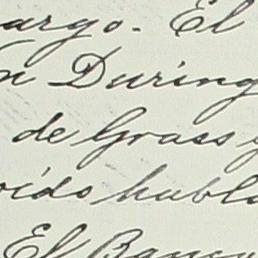 argo. El
n During
de Grass y
oido habla
El Banco